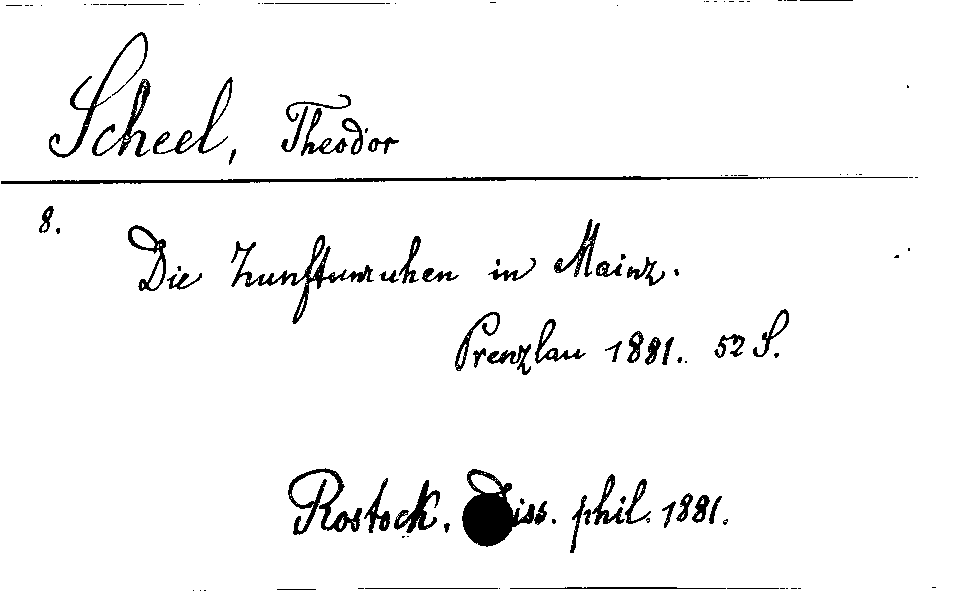 Scheel, Theodor
8.
Die Zunftunruhen in Mainz.
Prenzlau 1881. 52 S.
Rostock. Diss. phil. 1881.